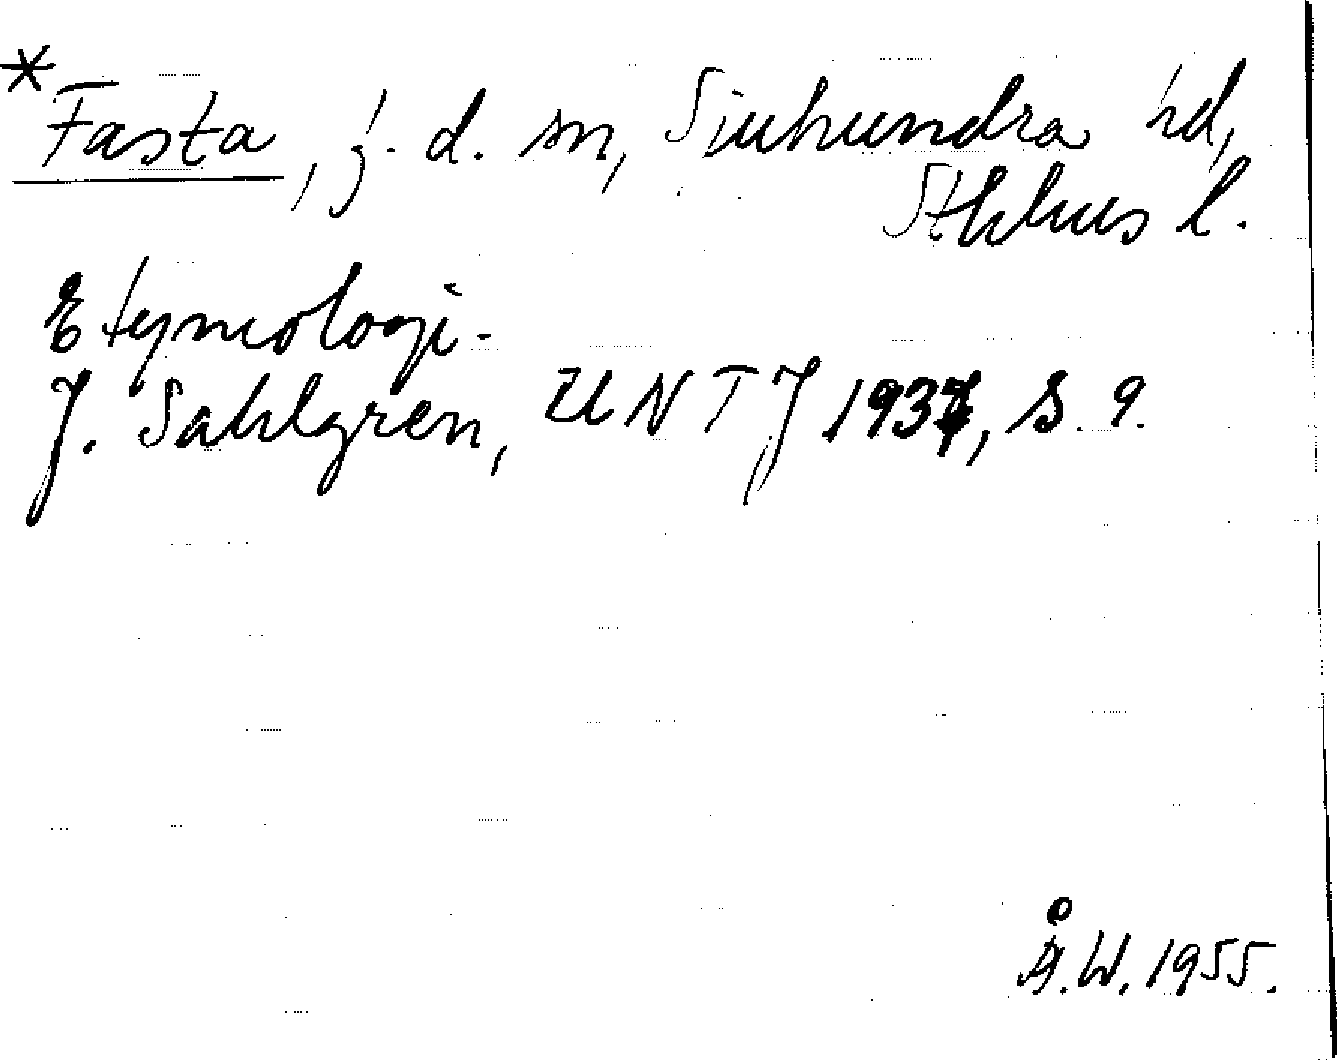 *Fasta, j. d. sn, Sjuhundra hd,
Sthlms l.
Etymologi.
J. Sahlgren, UNTJ 1937, s. 9.
Å.W. 1955.